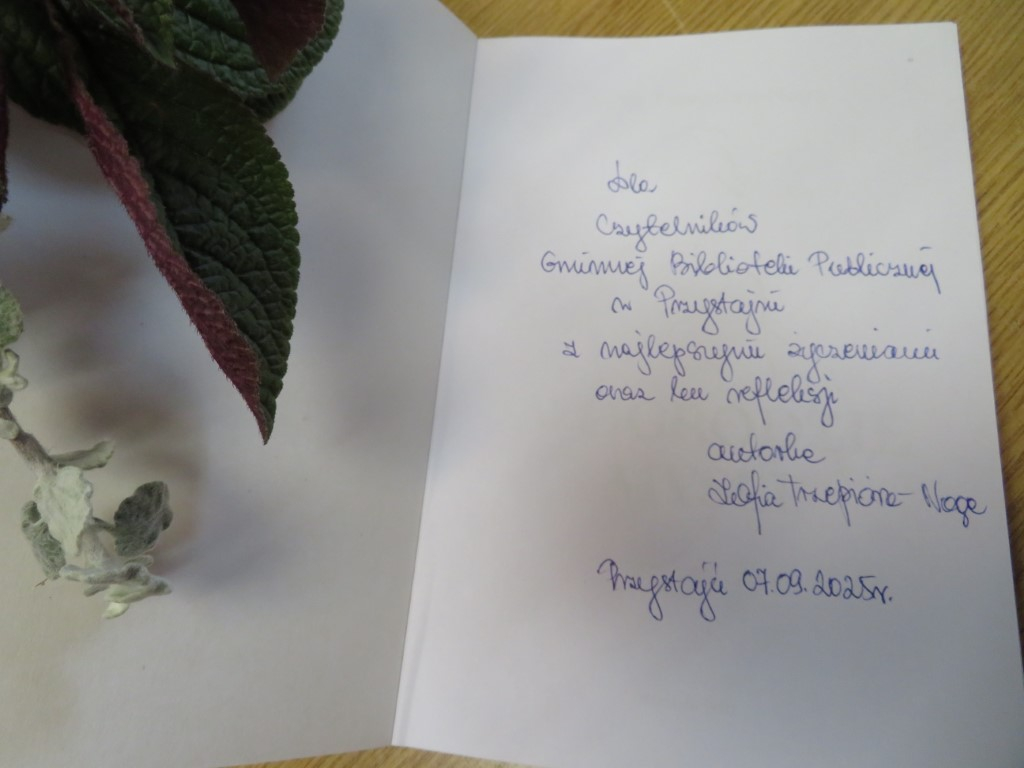 Dla
Czytelników
Gminnej Biblioteki Publicznej
w Przystajni
z najlepszymi życzeniami
oraz ku refleksji
autorka
Zofia Trzepióra - Noga
Przystajń 07.09.2025r.